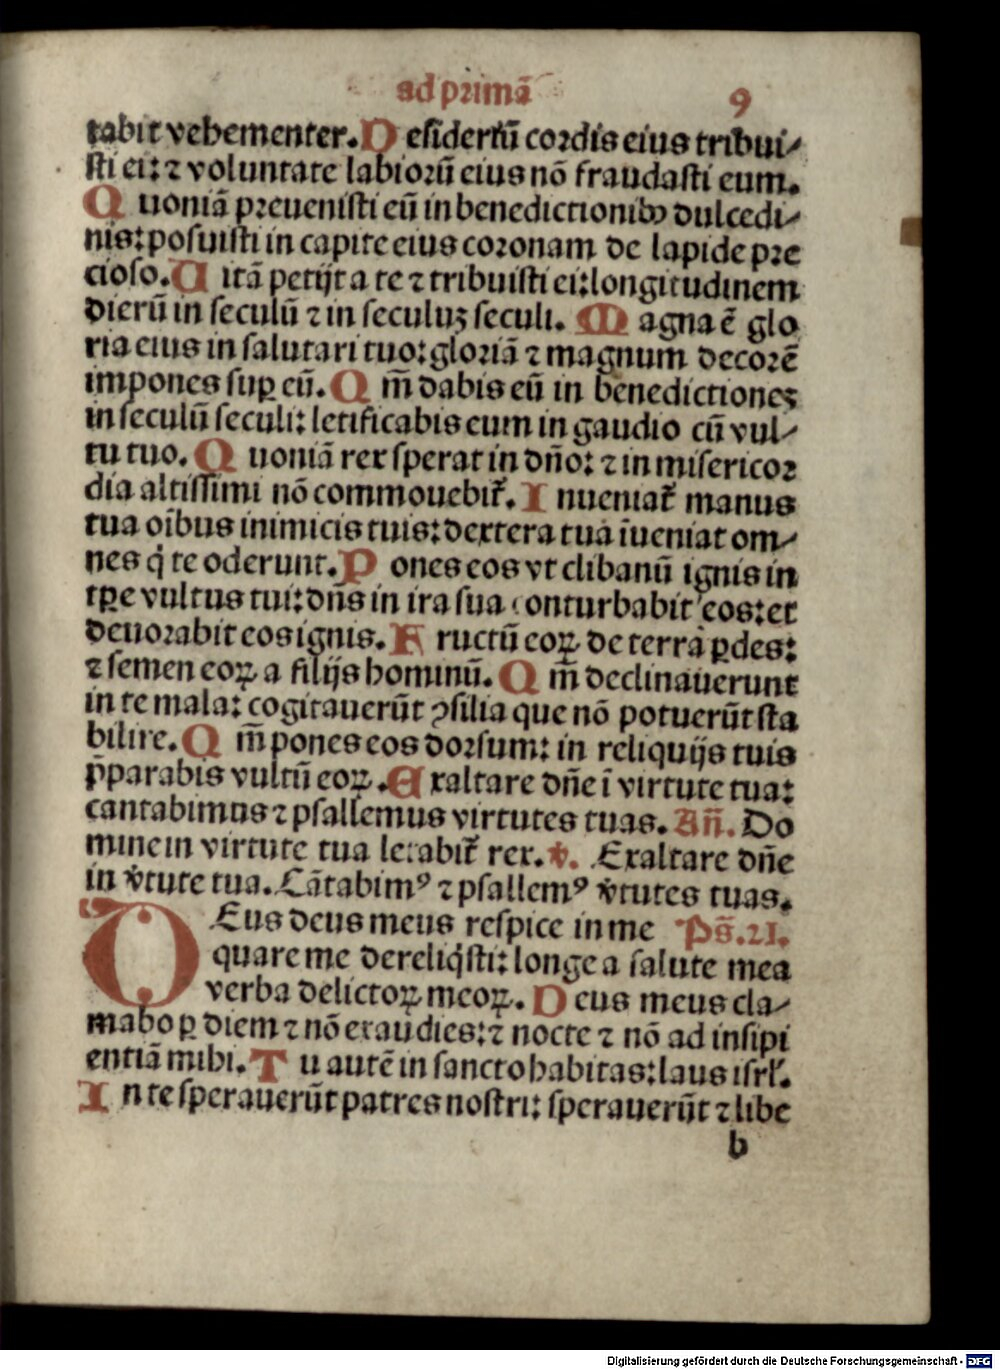 ad primã
9
tabit vehementer. Desideriũ cordis eius tribui⸗
sti ei: ⁊ voluntate labiorũ eius nõ fraudasti eum.
Quoniã preuenisti eũ in benedictionibꝰ dulcedi⸗
nis: posuisti in capite eius coronam de lapide pre
cioso. Uitã petijt a te ⁊ tribuisti ei: longitudinem
dierũ in seculũ ⁊ in seculuʒ seculi. Magna ẽ glo
ria eius in salutari tuo: gloriã ⁊ magnum decorẽ
impones suꝑ eũ. Qm̃ dabis eũ in benedictiones
in seculũ seculi: letificabis eum in gaudio cũ vul⸗
tu tuo. Quoniã rex sperat in dño: ⁊ in misericor
dia altissimi nõ commouebit̃. Inueniat̃ manus
tua oĩbus inimicis tuis: dextera tua ĩueniat om⸗
nes q̇ te oderunt. Pones eos vt clibanũ ignis in
tꝑe vultus tui: dñs in ira sua conturbabit eos: et
deuorabit eos ignis. Fructũ eoꝝ de terra ꝑdes:
⁊ semen eoꝝ a filijs hominũ. Qm̃ declinauerunt
in te mala: cogitauerũt ꝯsilia que nõ potuerũt sta
bilire. Qm̃ pones eos dorsum: in reliquijs tuis
p̃parabis vultũ eoꝝ. Exaltare dñe ĩ virtute tua:
cantabimus ⁊ psallemus virtutes tuas. Añ. Do
mine in virtute tua letabit̃ rex. ℣. Exaltare dñe
in v̾tute tua. Cãtabimꝰ ⁊ psallemꝰ v̾tutes tuas.
DEus deus meus respice in me Ps̃. 21.
quare me dereliq̇sti: longe a salute mea
verba delictoꝝ meoꝝ. Deus meus cla⸗
mabo ꝑ diem ⁊ nõ exaudies: ⁊ nocte ⁊ nõ ad insipi
entiã mihi. Tu autẽ in sancto habitas: laus isrl̃.
In te sperauerũt patres nostri: sperauerũt ⁊ libe
b
Digitalisierung gefördert durch die Deutsche Forschungsgemeinschaft - DFG